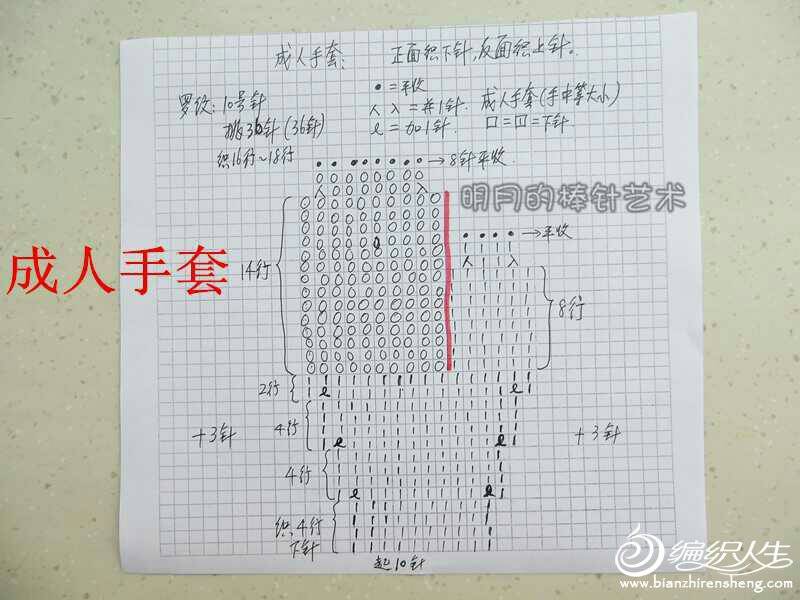 成人手套: 正面织下针,反面织上针。
罗纹:10号针
挑36针(36针)
织16行~18行
•=平收
人 入=并1针.
ℓ=加1针.
成人手套(手中等大小)
口=口=下针
→8针平收
明月的棒针艺术
→平收
成人手套
14行
8行
2行
+3针
4行
+3针
4行
织4行
下针
起10针
编织人生
www.bianzhirensheng.com